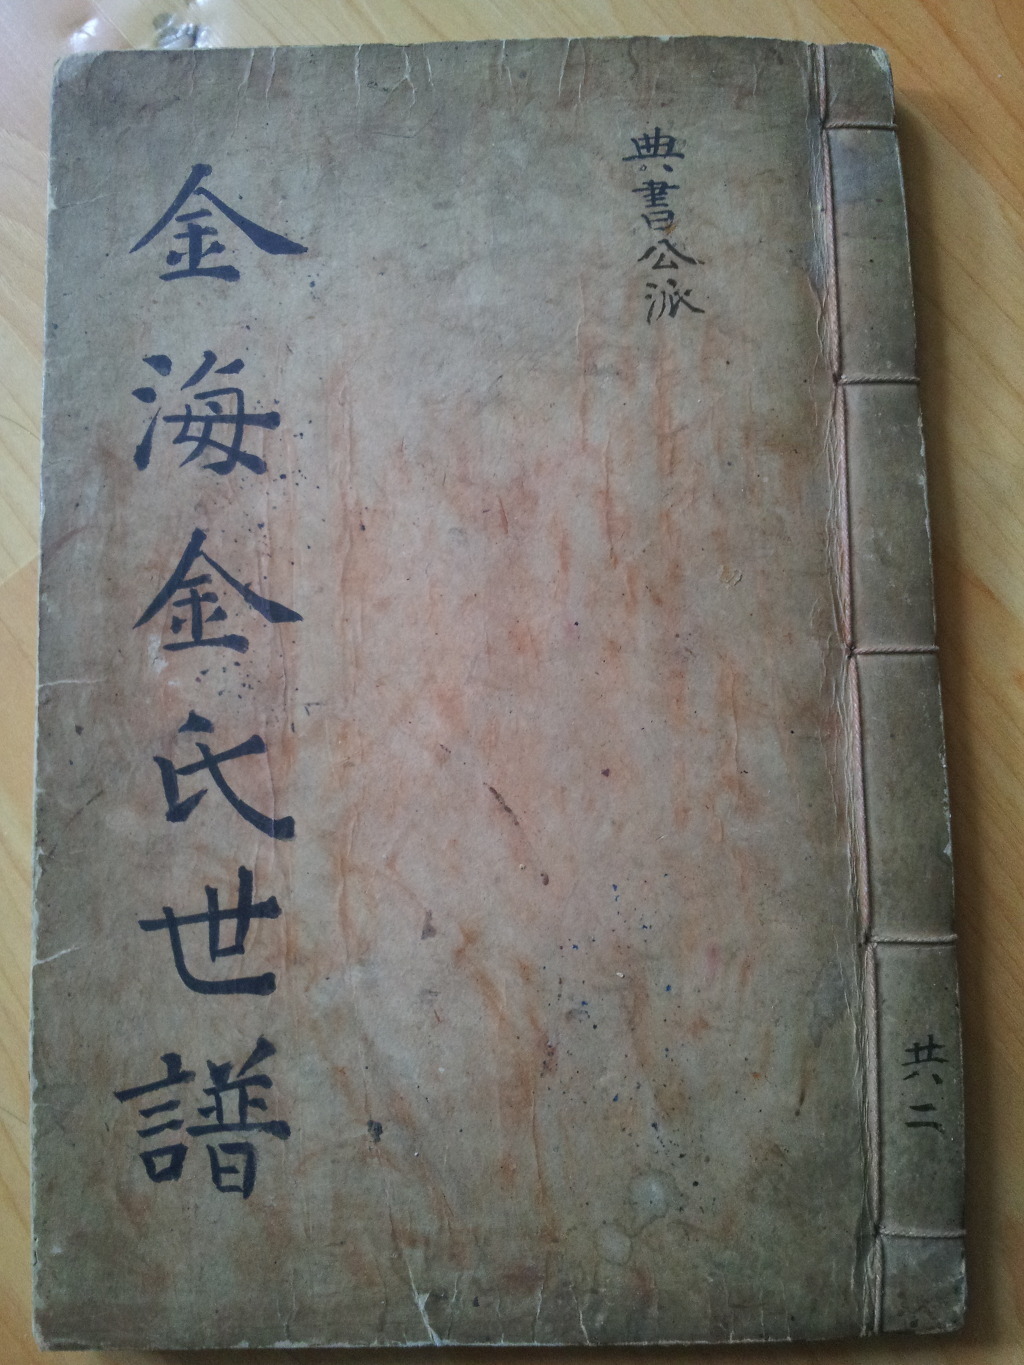 典書公派
金海金氏世譜
共二